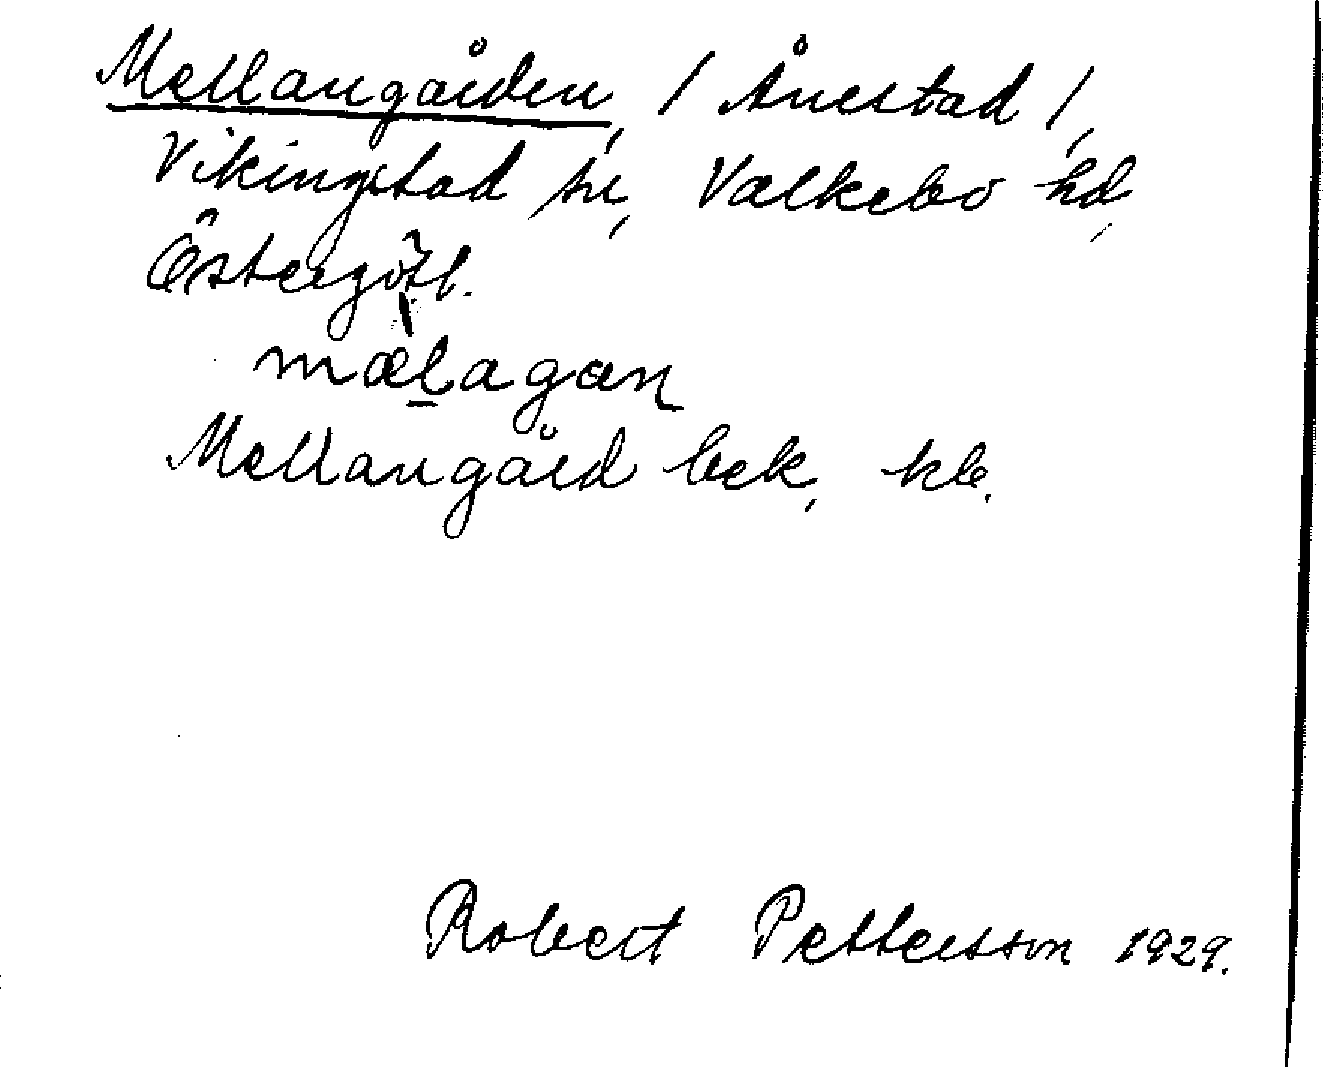 Mellangården, / Ånestad /,
Vikingstad sn, Valkebo hd,
Östergötl.
mæ̀lagan
Mellangård bek, kb.
Robert Pettersson 1929.